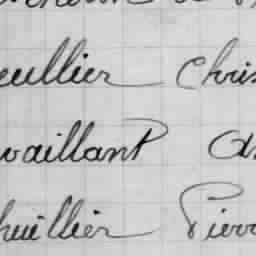 eullier Chris
vaillant As
huillier Pierr